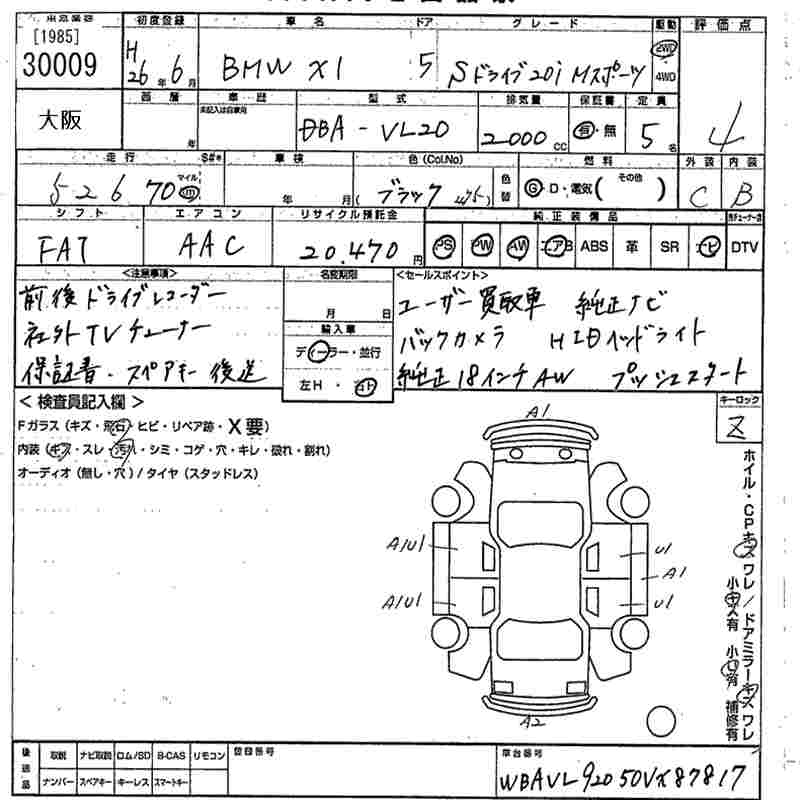 [1985]
30009
初度登録
H26年6月
車名
BMW X1
ドア
5
グレード
Sドライブ20i Mスポーツ
駆動
2WD
4WD
評価点
4
大阪
西暦
年
車歴
未記入は自家用
型式
DBA-VL20
排気量
2000cc
保証書
有・無
定員
5名
走行
52670
マイル
km
S#*
車検
年 月
色(Col.No)
ブラック 475
色替
燃料
G・D・電気( その他 )
外装
C
内装
B
シフト
FAT
エアコン
AAC
リサイクル預託金
20,470円
純正装備品
PS PW AW エアB ABS 革 SR ナビ
DTV
<注意事項>
前後ドライブレコーダー
社外TVチューナー
保証書・スペアキー後送
名変期限
月 日
輸入車
ディーラー・並行
左H・右H
<セールスポイント>
ユーザー買取車 純正ナビ
バックカメラ HIDヘッドライト
純正18インチAW プッシュスタート
<検査員記入欄>
Fガラス(キズ・飛石・ヒビ・リペア跡・X要)
内装(キズ・スレ・汚れ・シミ・コゲ・穴・キレ・破れ・割れ)
オーディオ(無し・穴)/タイヤ(スタッドレス)
キーロック
Z
A1
A1U1
U1
A1
A1U1
U1
A2
ホイル・CPキズワレ/ドアミラーキズワレ
小キズ有 小凹有 補修有
後送品
取説 ナビ取説 ロム/SD B-CAS リモコン
ナンバー スペアキー キーレス スマートキー
登録番号
車台番号
WBAVL92050VX87817